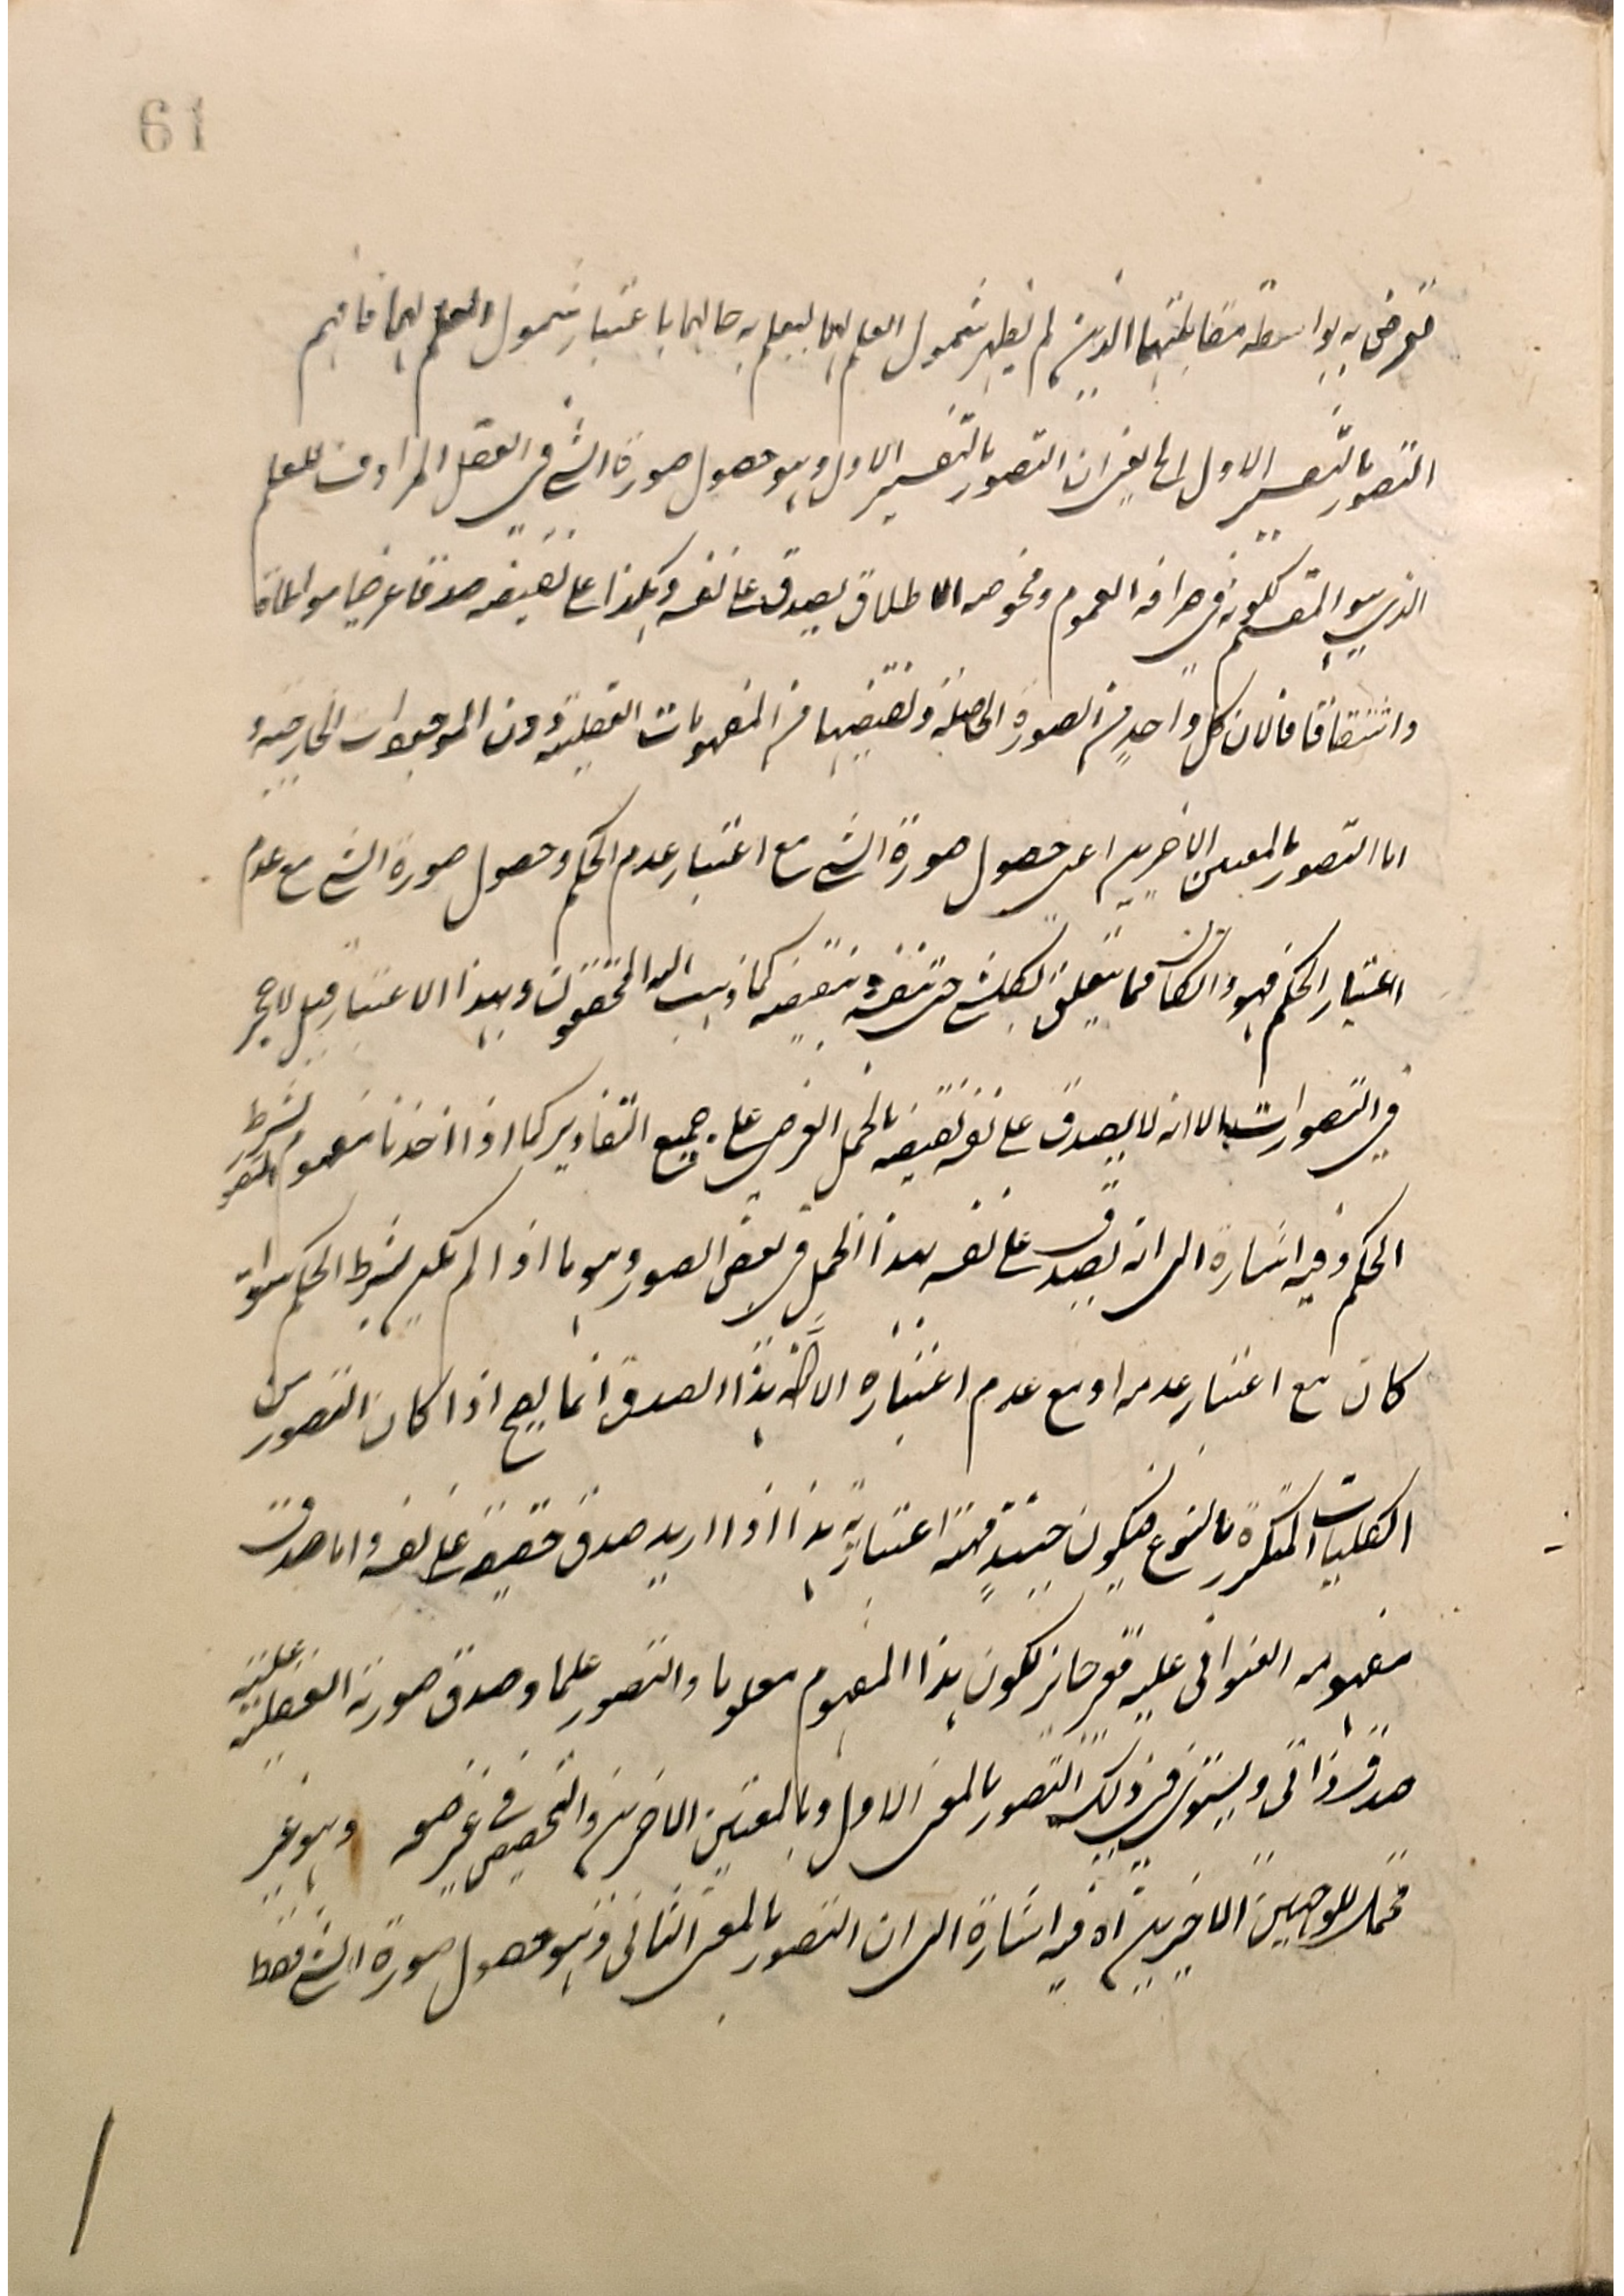 61
تعرض به بواسطة مقابلتهما الذين لم يظهر شمول العلم لهما ليعلم به حالهما باعتبار شمول العلم لهما فافهم
التصور بالتفسير الاول الخ يعني ان التصور بالتفسير الاول وهو حصول صورة الشي في العقل المرادف للعلم
الذي هو المقسم لكونه في صرافة العموم ومحوضه الاطلاق يصدق على نفسه وكذا على نقيضه صدقا عرضيا مواطاة
واشتقاقا فالان كل واحد من الصورة الحاصلة ونقيضها من المفهومات العقلية دون الموجودات الخارجية و
اما التصور بالمعنيين الاخيرين اعنى حصول صورة الشي مع اعتبار عدم الحكم وحصول صورة الشي مع عدم
اعتبار الحكم فهو وان كان مما يتعلق بكل شي حتى بنفسه ونقيضه كما ذهب اليه المحققون وبهذا الاعتبار قيل لا حجر
في التصورات الا انه لا يصدق على نفسه ونقيضه بالحمل العرضي على جميع التقادير كما اذا اخذنا مفهوم التصور بشرط
الحكم وفيه اشارة الى انه يصدق على نفسه بهذا الحمل في بعض الصور وهو ما اذا لم يكن بشرط الحكم سواء
كان مع اعتبار عدمه او مع عدم اعتباره الا ان هذا الصدق انما يصح اذا كان التصور من
الكليات المتكررة بالنوع فيكون حينئذ مهية اعتبارية هذا اذا اريد صدق حقيقته على نفسه واما صدق
مفهومه العنواني عليه فغير جايز لكون هذا المفهوم معلوما والتصور علما وصدق صورته العقلية عليه
صدق ذاتى ويستوى في ذلك التصور بالمعنى الاول وبالمعنيين الاخيرين والتخصيص في غير ضحه وهو غير
محتمل للوجهين الاخيرين اه فيه اشارة الى ان التصور بالمعنى الثانى وهو حصول صورة الشي فقط